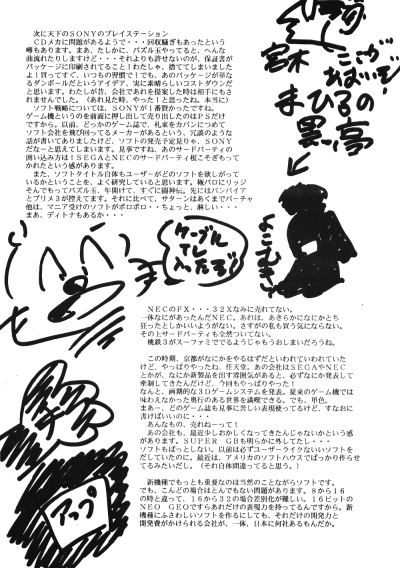 次に天下のSONYのプレイステーション
CDメカに問題があるようで・・・回収騒ぎもあったという
噂もあります。まあ、たしかに、パズル玉やってると、へんな
曲流れたりしますけど・・・それよりも許せないのが、保証書が
パッケージに印刷されてること！わたしゃ、捨ててしまいました
よ！買ってすぐ、いつもの習慣で！でも、あのパッケージが単な
るダンボールだというアイデア、実に素晴らしいコストダウンだ
と思います。わたしが昔、会社であれを提案した時は相手にもさ
れませんでした。（あれ見た時、やった！と思ったね。本当に）
ソフト戦略については、ＳＯＮＹが１番賢かったですね。
ゲーム機というのを前面に押し出して売り出したのはＰＳだけ
ですから。以前、どっかのゲーム誌で、札束をカバンにつめて
ソフト会社を飛び回ってるメーカーがあるという、冗談のような
話が書いてありましたけど、ソフトの発売予定見りゃ、ＳＯＮＹ
だなーと思えてしまいます。見事ですね、あのサードパーティの
囲い込み方は！ＳＥＧＡとＮＥＣのサードパーティ根こそぎもって
かれたという感があります。
また、ソフトタイトル自体もユーザーがどのソフトを欲しがって
いるかということを、よく研究していると思います。極パロにリッジ
そんでもってパズル玉、年開けて、すぐに闘神伝。先にはバンパイア
とプリメ３が控えてます。それに比べて、サターンはあくまでバーチャ
他は、マニア受けのソフトがポロポロ・・ちょっと、淋しい・・・
まあ、デイトナもあるか・・・
ケーブル
TV
入ったぞ
ＮＥＣのＦＸ・・・３２Ｘなみに売れてない。
一体なにがあったんだＮＥＣ。あれは、あきらかになにかとち
狂ったとしかいいがない。さすがの私も買う気にならない。
その上サードパーティも全然ついてない。
桃鉄３がスーファミででるようじゃもうおしまいだろうね。
この時期、京都がなにかをやるはずだといわれていたわ
けど、やっぱりやったね、任天堂。あの会社はＳＥＧＡやＮＥＣ
とかが、なにか新製品を出す雰囲気があると、必ずなにか発表して
牽制してきたんだけど、今回もやっぱりやった！
なんと、画期的な３Ｄゲームシステムを発表。従来のゲーム機では
味わえなかった奥行のある世界を満喫できる。でも、単色。
まあー、どのゲーム誌も見事に苦しい表現使ってるけど、すなおに
書けばいいのに・・・
あんなもの、売れねーって！
あの会社も、最近少しおかしくなってきたんじゃないかという感
があります。ＳＵＰＥＲ ＧＢも明らかに外してたし・・・
ソフトもぱっとしない。以前は必ずユーザーライクないいソフトを
だしていたのに。最近は、アメリカのソフトハウスでばっかり作らせ
てるみたいだし。（それ自体間違ってると思う。）
新機種でもっとも重要なのは当然のことながらソフトです。
でも、こんどの場合はとんでもない問題があります。８から１６
の時と違って、１６から３２の場合差別化が難しい。１６ビットの
ＮＥＯ ＧＥＯですらあれだけの表現力を持ってるんですから。新
機種にふさわしいソフトを作るにしても、それだけの開発力と
開発費がかけられる会社が、一体、日本に何社あるもんだか。
アップ